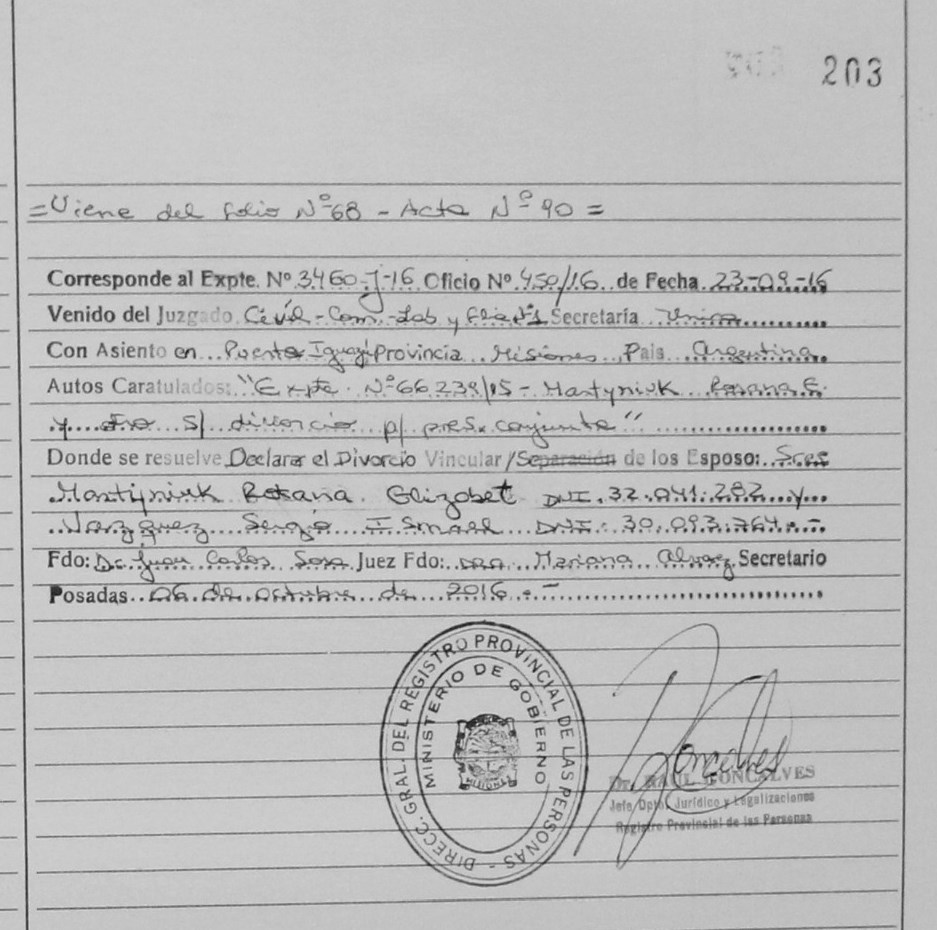 203
=Viene del folio Nº68 - Acta Nº 90 =
Corresponde al Expte. Nº 3460-J-16 Oficio Nº 450/16 de Fecha 23-09-16
Venido del Juzgado Civil-Com.-Lab y Flia Nº1 Secretaría Unica
Con Asiento en Puerto Iguazú Provincia Misiones País Argentina
Autos Caratulados: "Expte. Nº66239/15 - Martyniuk Rosana E.
y otro s/ divorcio p/ pres. conjunta"
Donde se resuelve Declarar el Divorcio Vincular/Separación de los Esposo: Sres
Martyniuk Rosana Elizabet DNI. 32.041.282 y
Vazquez Sergio Ismael DNI: 30.093.764.-
Fdo: Dr. Juan Carlos Sosa Juez Fdo: Dra Mariana Alvarez Secretario
Posadas 06 de octubre de 2016.-
DIRECC. GRAL. DEL REGISTRO PROVINCIAL DE LAS PERSONAS -
MINISTERIO DE GOBIERNO
MISIONES
Dr. RAUL GONCALVES
Jefe Dpto. Jurídico y Legalizaciones
Registro Provincial de las Personas